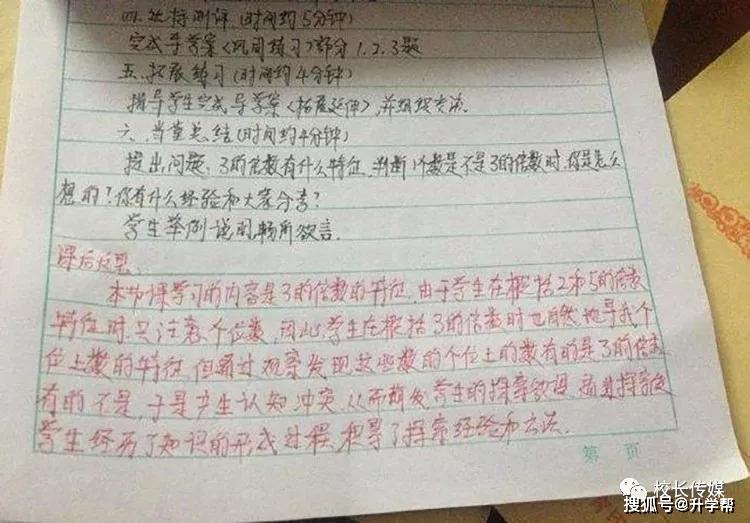 四.达标测评(时间约5分钟)
完成导学案《巩固练习》部分1.2.3题
五.拓展练习(时间约4分钟)
指导学生完成导学案《拓展延伸》,并组织交流
六.当堂总结(时间约4分钟)
提出问题:3的倍数有什么特征,判断1个数是不是3的倍数时,你是怎么
想的?你有什么经验和大家分享?
学生举例说明,畅所欲言.
课后反思:
本节课学习的内容是3的倍数的特征,由于学生在概括2和5的倍数
特征时,只注意个位数,因此学生在概括3的倍数时也自然地寻找个
位上数的特征,但通过观察发现这些数的个位上的数有的是3的倍数
有的不是,于是产生认知冲突,从而激发学生的探索欲望,通过探究使
学生经历了知识的形成过程,积累了探索经验和方法.
第 页
校长传媒
搜狐号@升学帮